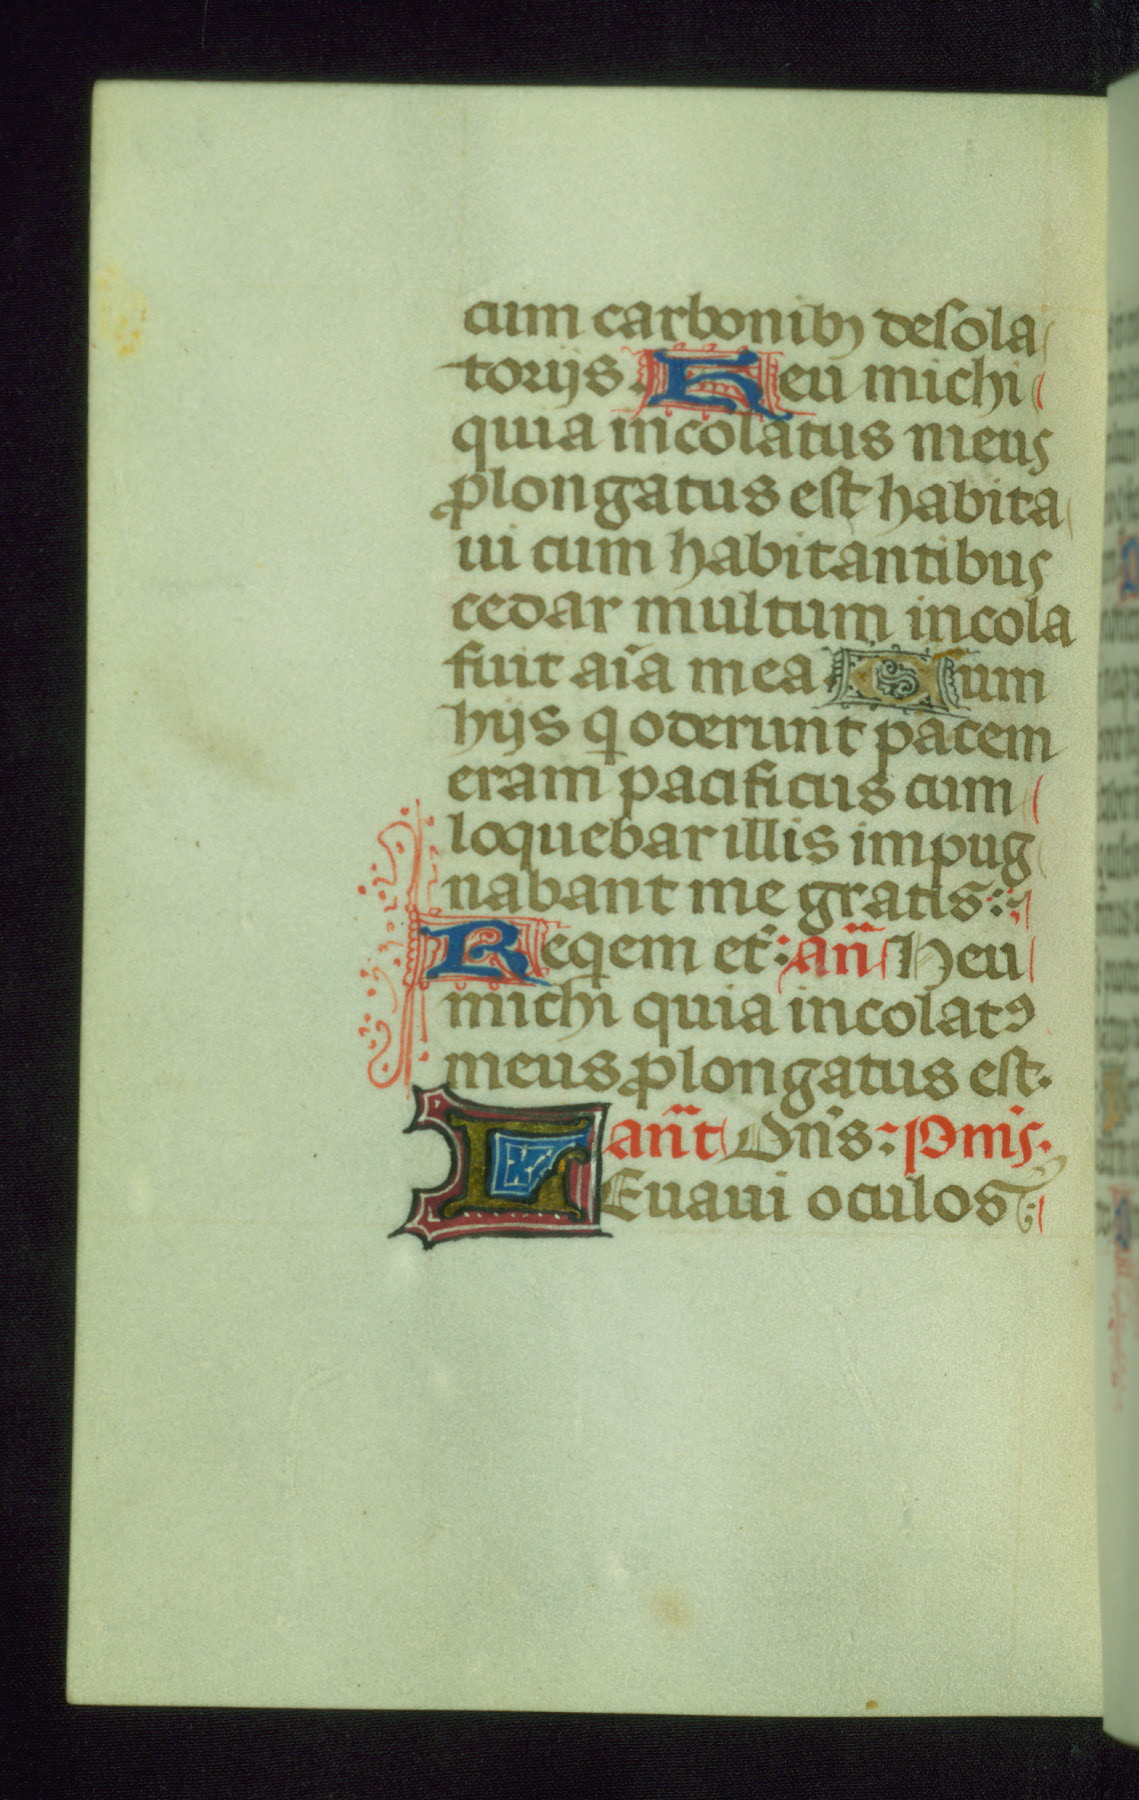 cum carbonibꝫ desola
torijs. Heu michi
quia incolatus meus
ꝓlongatus est habita
ui cum habitantibus
cedar multum incola
fuit aīa mea Cum
hijs q̇ oderunt pacem
eram pacificus cum
loquebar illis impug
nabant me gratis:
Reqem et̄: an̄ Heu
michi quia incolatꝯ
meus ꝓlongatus est.
an̄t Dn̄s: Pm̄s.
LEuaui oculos